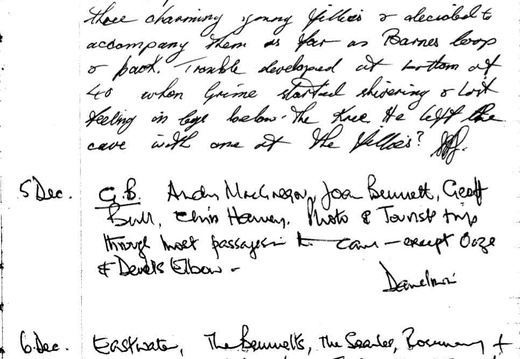 three charming young fillies & decided to
accompany them as far as Barnes loop
& back. Trouble developed at bottom of
40 when Graeme started shivering & lost
feeling in legs below the knee He left the
cave with one of the fillies?
5 Dec. G.B. Andy MacGregor, Joan Bennett, Geoff
Bull, Chris Harvey. Photo & Tourist trip
through most passages in cave – except Ooze
& Devils Elbow –
6.Dec. Eastwater, The Bennetts, The